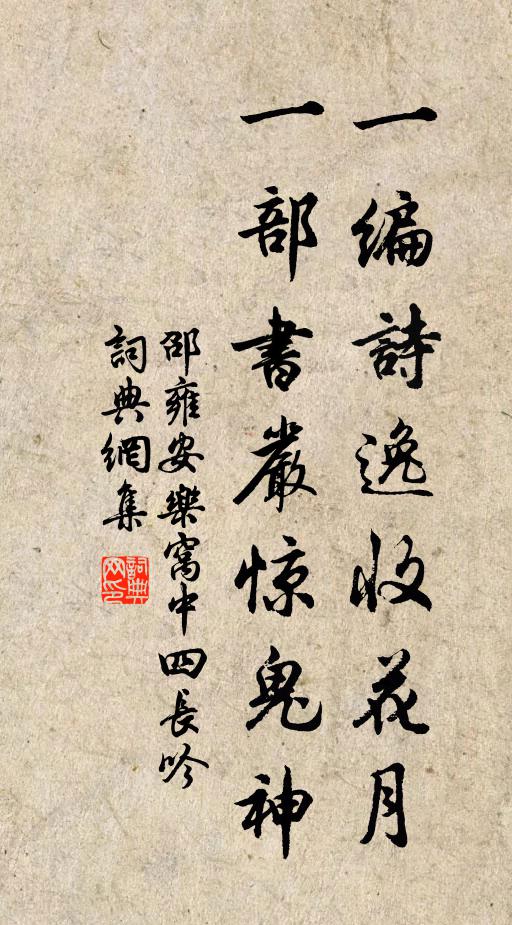 一編詩逸收花月
一部書嚴惊鬼神
邵雍安樂窩中四長吟
詞典網集
詞典网印